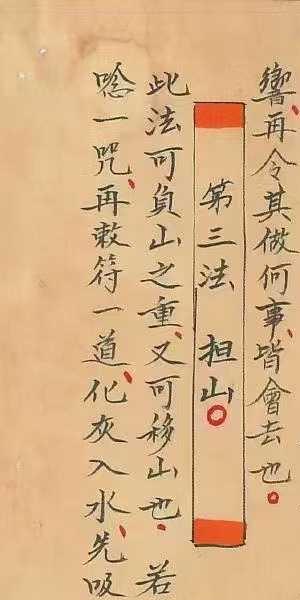 響、再令其做何事、皆會去也。
第三法　担山。
此法可負山之重、又可移山也、若
唸一咒、再敕符一道、化灰入水、先吸